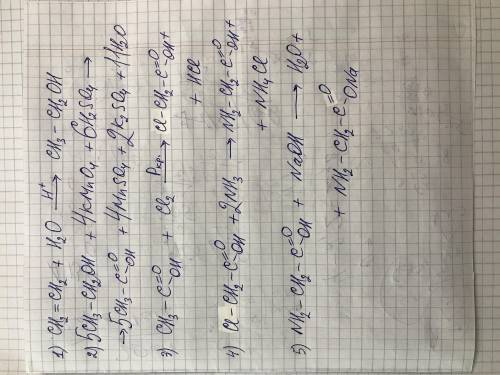 1) CH₂=CH₂ + H₂O —H⁺→ CH₃–CH₂OH
2) 5CH₃–CH₂OH + 4KMnO₄ + 6H₂SO₄ →
→ 5CH₃–C(=O)–OH + 4MnSO₄ + 2K₂SO₄ + 11H₂O
3) CH₃–C(=O)–OH + Cl₂ —Pкр.→ Cl–CH₂–C(=O)–OH +
+ HCl
4) Cl–CH₂–C(=O)–OH + 2NH₃ → NH₂–CH₂–C(=O)–OH +
+ NH₄Cl
5) NH₂–CH₂–C(=O)–OH + NaOH → H₂O +
+ NH₂–CH₂–C(=O)–ONa